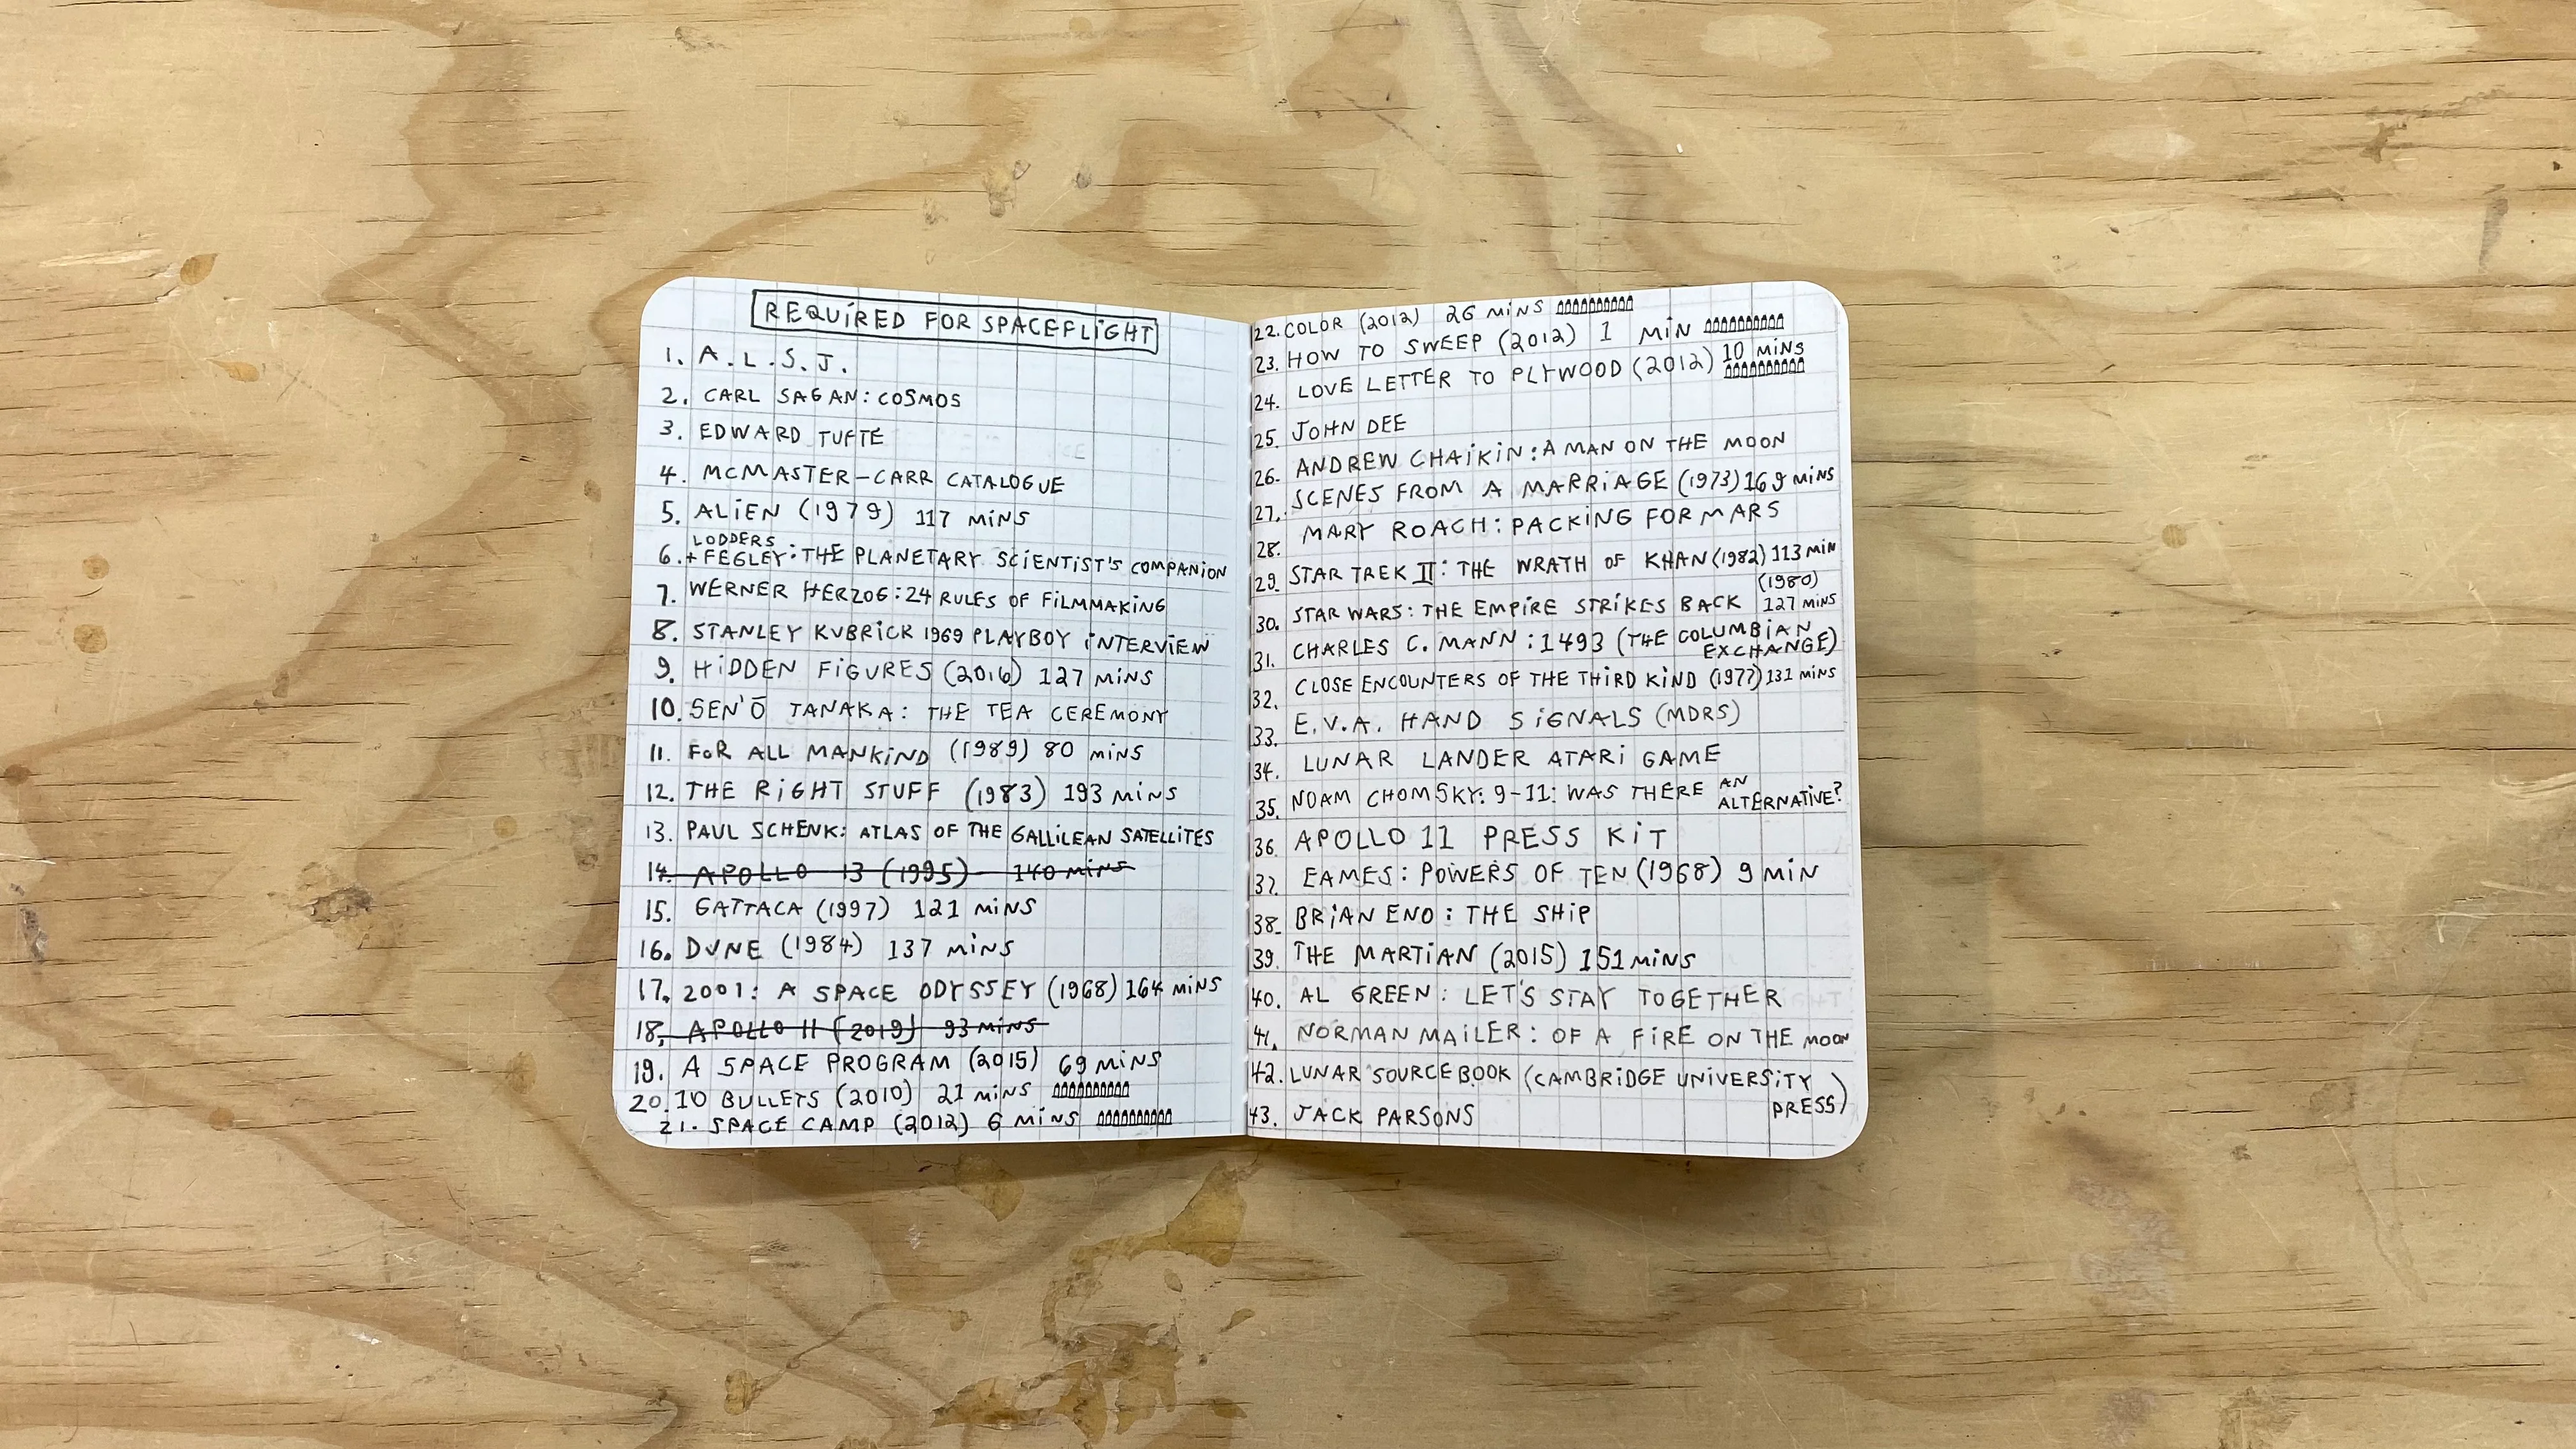 REQUIRED FOR SPACEFLIGHT
1. A.L.S.J.
2. CARL SAGAN: COSMOS
3. EDWARD TUFTE
4. MCMASTER-CARR CATALOGUE
5. ALIEN (1979) 117 MINS
6. LODDERS + FEGLEY: THE PLANETARY SCIENTIST'S COMPANION
7. WERNER HERZOG: 24 RULES OF FILMMAKING
8. STANLEY KUBRICK 1969 PLAYBOY INTERVIEW
9. HIDDEN FIGURES (2016) 127 MINS
10. SEN'Ō TANAKA: THE TEA CEREMONY
11. FOR ALL MANKIND (1989) 80 MINS
12. THE RIGHT STUFF (1983) 193 MINS
13. PAUL SCHENK: ATLAS OF THE GALLILEAN SATELLITES
14. APOLLO 13 (1995) 140 MINS
15. GATTACA (1997) 121 MINS
16. DUNE (1984) 137 MINS
17. 2001: A SPACE ODYSSEY (1968) 164 MINS
18. APOLLO 11 (2019) 93 MINS
19. A SPACE PROGRAM (2015) 69 MINS
20. 10 BULLETS (2010) 21 MINS
21. SPACE CAMP (2012) 6 MINS
22. COLOR (2012) 26 MINS
23. HOW TO SWEEP (2012) 1 MIN
24. LOVE LETTER TO PLYWOOD (2012) 10 MINS
25. JOHN DEE
26. ANDREW CHAIKIN: A MAN ON THE MOON
27. SCENES FROM A MARRIAGE (1973) 169 MINS
28. MARY ROACH: PACKING FOR MARS
29. STAR TREK II: THE WRATH OF KHAN (1982) 113 MIN
30. STAR WARS: THE EMPIRE STRIKES BACK (1980) 127 MINS
31. CHARLES C. MANN: 1493 (THE COLUMBIAN EXCHANGE)
32. CLOSE ENCOUNTERS OF THE THIRD KIND (1977) 131 MINS
33. E.V.A. HAND SIGNALS (MDRS)
34. LUNAR LANDER ATARI GAME
35. NOAM CHOMSKY: 9-11: WAS THERE AN ALTERNATIVE?
36. APOLLO 11 PRESS KIT
37. EAMES: POWERS OF TEN (1968) 9 MIN
38. BRIAN ENO: THE SHIP
39. THE MARTIAN (2015) 151 MINS
40. AL GREEN: LET'S STAY TOGETHER
41. NORMAN MAILER: OF A FIRE ON THE MOON
42. LUNAR SOURCEBOOK (CAMBRIDGE UNIVERSITY PRESS)
43. JACK PARSONS